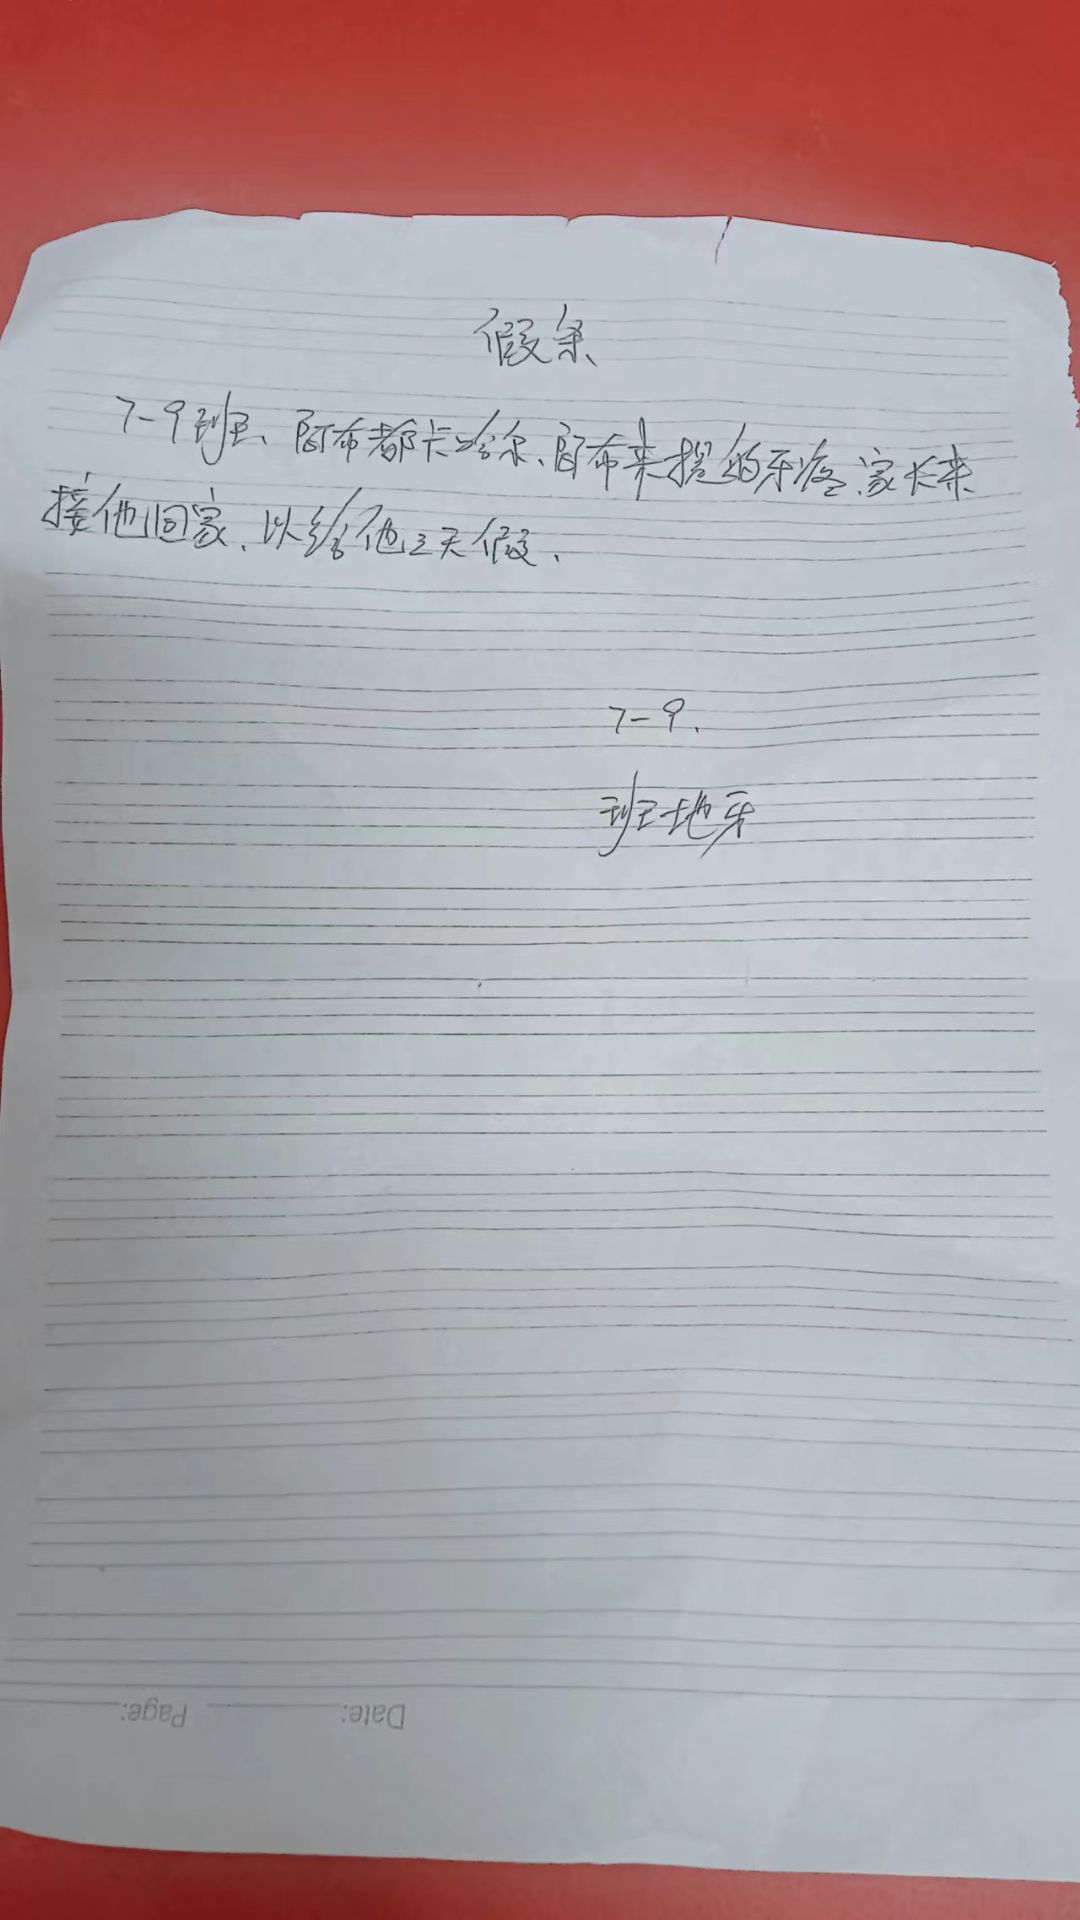 假条
7-9班、阿布都卡哈尔、阿布来提的牙疼、家长来
接他回家、以给他三天假、
7-9.
班地牙
Date: Page: